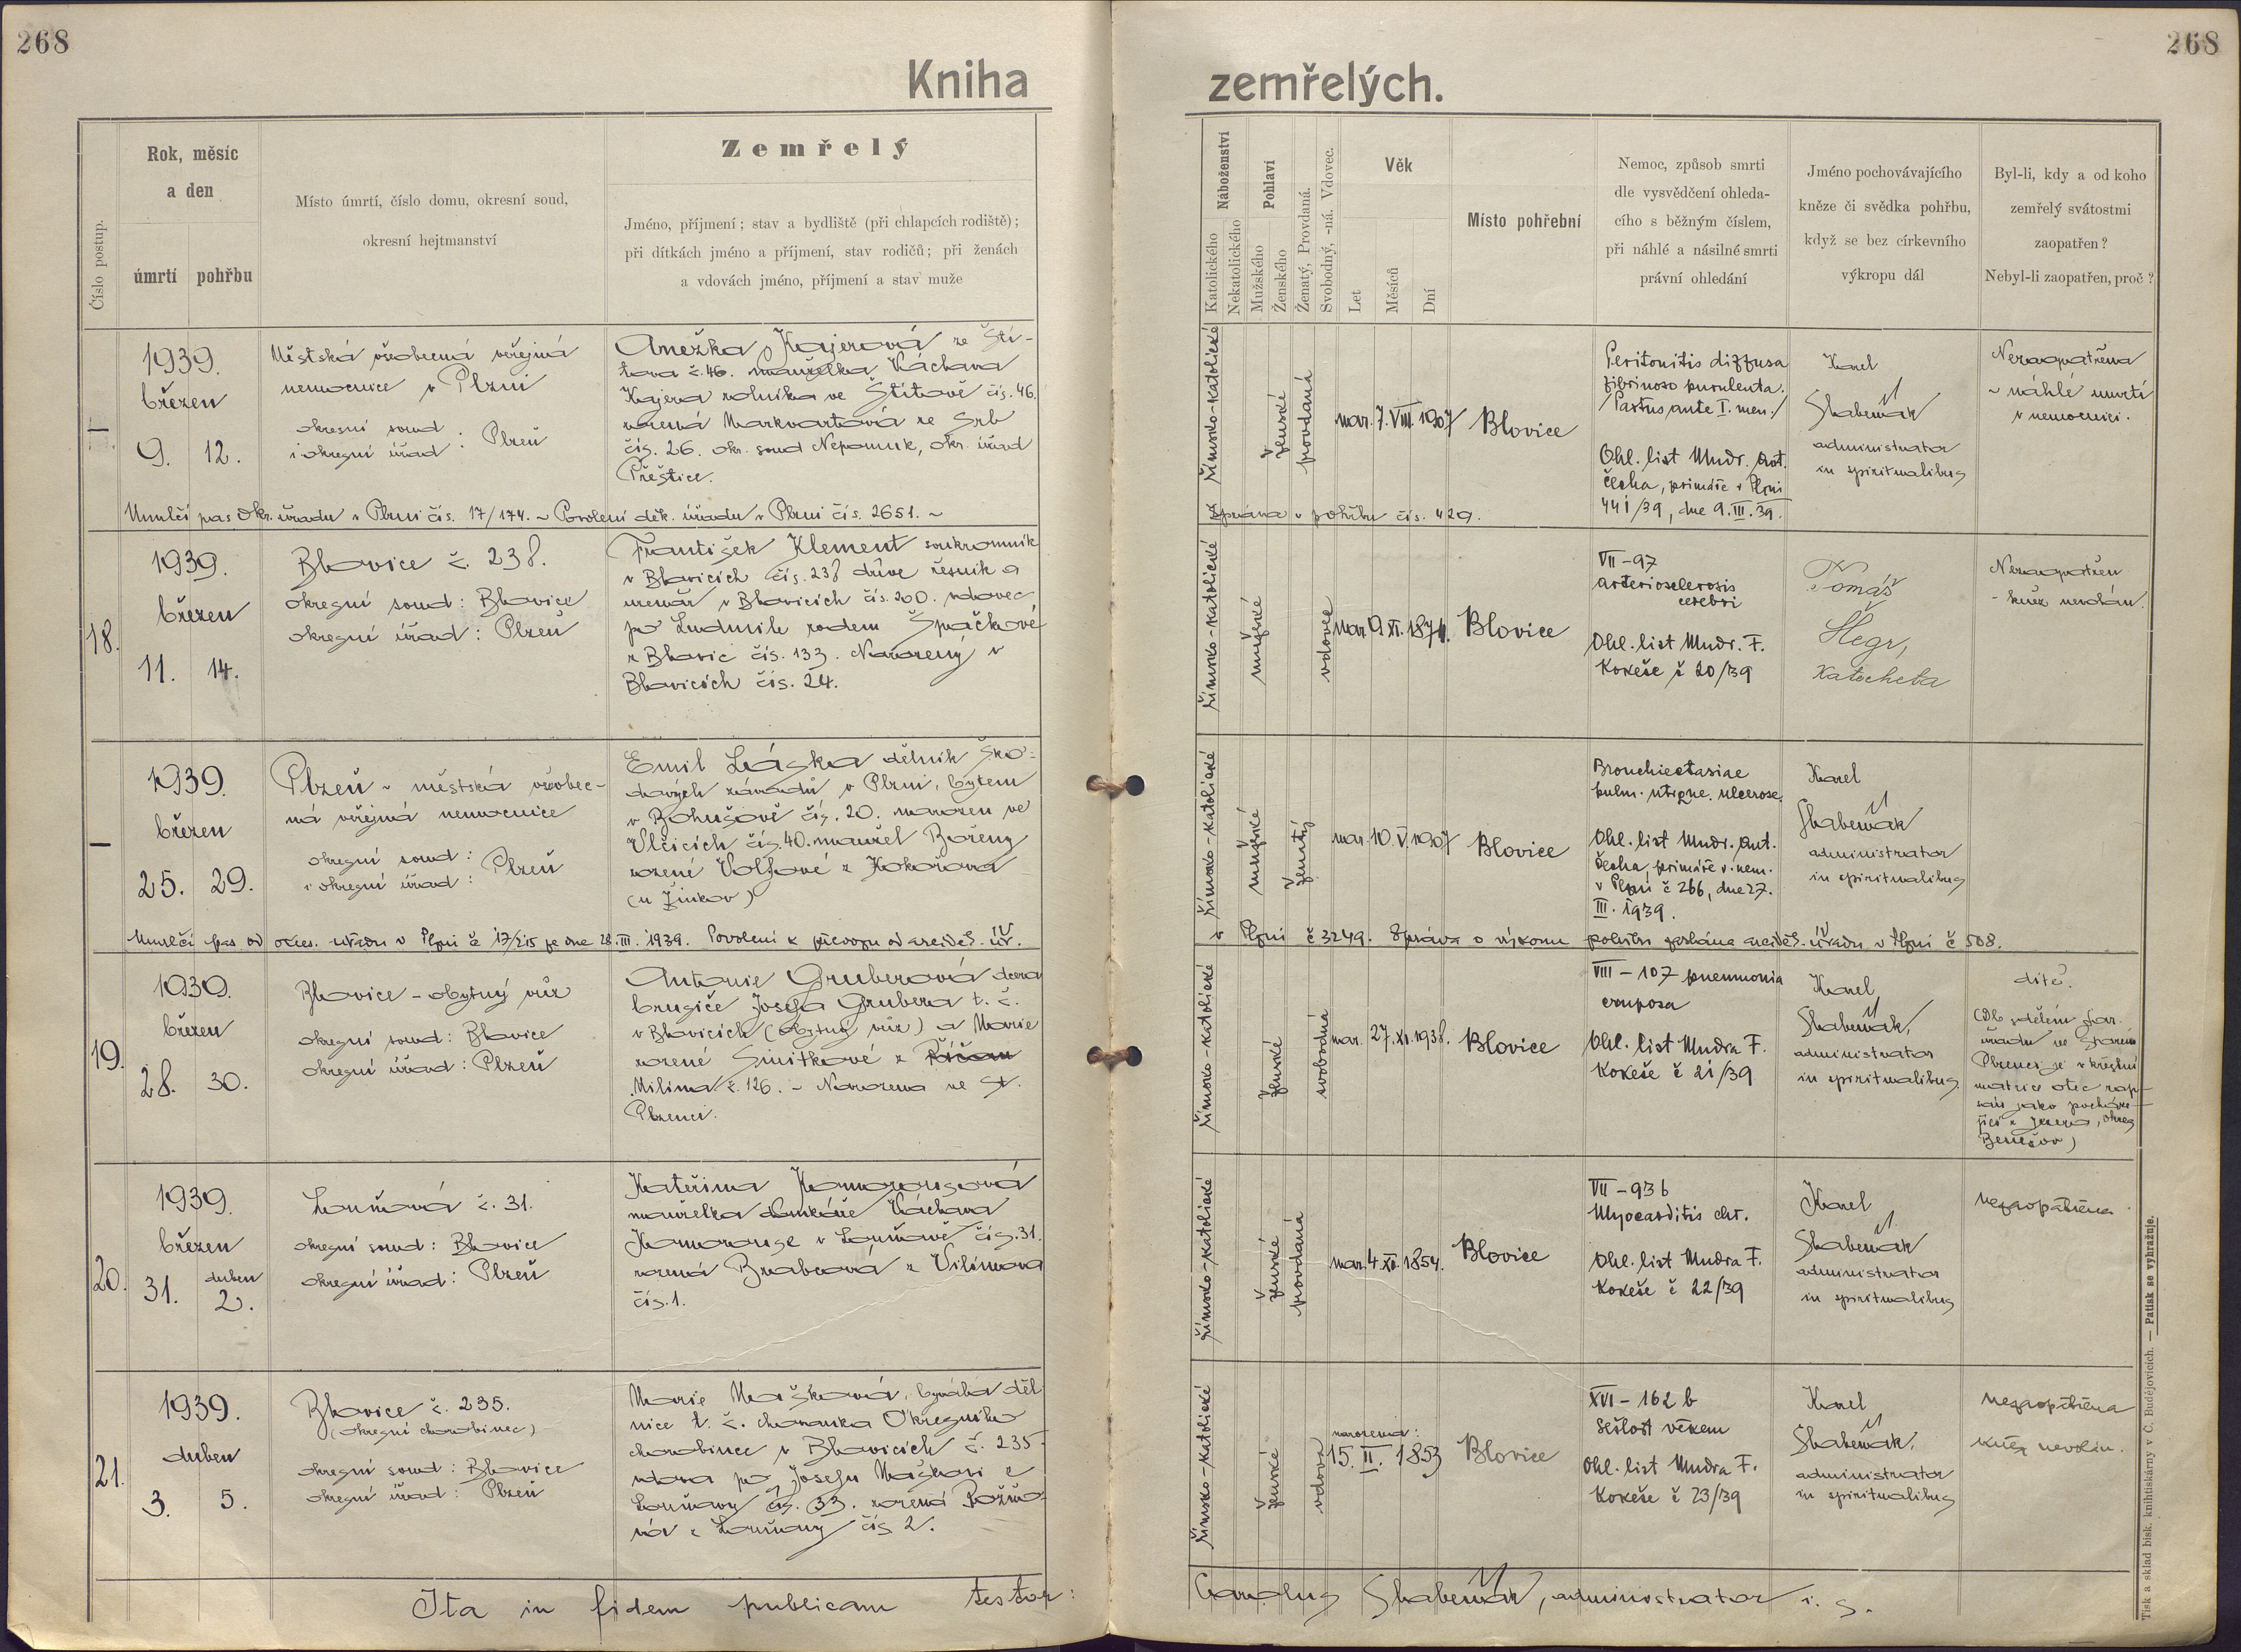 268
268
Kniha
zemřelých.
Číslo postup.
Rok, měsíc
a den
úmrtí
pohřbu
Místo úmrtí, číslo domu, okresní soud,
okresní hejtmanství
Zemřelý
Jméno, příjmení; stav a bydliště (při chlapcích rodiště);
při dítkách jméno a příjmení, stav rodičů; při ženách
a vdovách jméno, příjmení a stav muže
Náboženství
Katolického
Nekatolického
Pohlaví
Mužského
Ženského
Ženatý, Provdaná.
Svobodný, -ná. Vdovec.
Věk
Let
Měsíců
Dní
Místo pohřební
Nemoc, způsob smrti
dle vysvědčení ohleda-
cího s běžným číslem,
při náhlé a násilné smrti
právní ohledání
Jméno pochovávajícího
kněze či svědka pohřbu,
když se bez církevního
výkropu dál
Byl-li, kdy a od koho
zemřelý svátostmi
zaopatřen?
Nebyl-li zaopatřen, proč?
1939.
březen
9. 12.
Městská všeobecná veřejná
nemocnice v Plzni
okresní soud
i okresní úřad : Plzeň
Anežka Kajerová ze Ští-
tova č. 46. manželka Václava
Kajera rolníka ve Štítově čís. 46.
rozená Markvartová ze Srb
čís. 26. okr. soud Nepomuk, okr. úřad
Přeštice.
římsko-katolické
ženské
provdaná
nar. 7. VIII. 1907
Blovice
Peritonitis diffusa
fibrinoso purulenta.
/Partus ante I. men./
Ohl. list Mudr. Ant.
Čecha, primáře v Plzni
441/39, dne 9. III. 39.
Karel
Skabewák
administrator
in spiritualibus
Nezaopatřena
~ náhlé úmrtí
v nemocnici.
Umrlčí pas Okr. úřadu v Plzni čís. 17/174. ~ Povolení děk. úřadu v Plzni čís. 2651. ~
Zpráva o pohřbu čís. 429.
18.
1939.
březen
11. 14.
Blovice č. 238.
okresní soud: Blovice
okresní úřad: Plzeň
František Klement soukromník
v Blovicích čís. 238 dříve řezník a
uzenář v Blovicích čís. 200. vdovec
po Ludmile rodem Špačkové
z Blovic čís. 133. Narozený v
Blovicích čís. 24.
římsko-katolické
mužské
vdovec
nar. 9. XI. 1871.
Blovice
VII - 97
arteriosclerosis
cerebri
Ohl. list Mudr. F.
Kokeše č 20/39
Tomáš
Šlegr,
katecheta
Nezaopatřen
- kněz nevolán.
1939.
březen
25. 29.
Plzeň ~ městská všeobec-
ná veřejná nemocnice
okresní soud:
i okresní úřad: Plzeň
Emil Láska dělník Ško-
dových závodů v Plzni, bytem
v Bohušově čís. 20. narozen ve
Vlčicích čís. 40. manžel Boženy
rozené Volfové z Kokořova
(u Žinkov)
římsko-katolické
mužské
ženatý
nar. 10. V. 1907
Blovice
Bronchiectasiae
pulm. utrque. ulcerose.
Ohl. list Mudr. Ant.
Čecha, primáře v. nem.
v Plzni č 266, dne 27.
III. 1939.
Karel
Skabewák
administrator
in spiritualibus
Umrlčí pas od okres. úřadu v Plzni č 17/215 ze dne 28. III. 1939. Povolení k převozu od arciděk. úř.
v Plzni č 3249. Zpráva o výkonu pohřbu zaslána arciděk. úřadu v Plzni č 508.
19.
1939.
březen
28. 30.
Blovice - obytný vůz
okresní soud: Blovice
okresní úřad: Plzeň
Antonie Gruberová dcera
brusiče Josefa Grubera t. č.
v Blovicích (obytný vůz) a Marie
rozené Smitkové z Říčan
Milína č. 126. ~ Narozena ve St.
Plzenci.
římsko-katolické
ženské
svobodná
nar. 27. XI. 1938.
Blovice
VIII - 107 pneumonia
cruposa
Ohl. list Mudra F.
Kokeše č 21/39
Karel
Skabewák,
administrator
in spiritualibus
dítě.
(Dle sdělení far.
úřadu ve Starém
Plzenci je v křestní
matrice otec zap-
sán jako pocháze-
jící z Jezera, okres
Benešov)
20.
1939.
březen
31. duben 2.
Louňová č. 31.
okresní soud: Blovice
okresní úřad: Plzeň
Kateřina Komorousová
manželka domkáře Václava
Komorouse v Louňově čís. 31.
rozená Brabcová z Vilímova
čís. 1.
římsko-katolické
ženské
provdaná
nar. 4. XI. 1854.
Blovice
VII - 93 b
Myocarditis chr.
Ohl. list Mudra F.
Kokeše č 22/39
Karel
Skabewák
administrator
in spiritualibus
nezaopatřena
21.
1939.
duben
3. 5.
Blovice č. 235.
(okresní chorobinec)
okresní soud: Blovice
okresní úřad: Plzeň
Marie Mašková, bývalá děl-
nice t. č. chovanka Okresního
chorobince v Blovicích č. 235
vdova po Josefu Maškovi z
Louňovy čís. 33. rozená
z Louňovy čís 2.
římsko-katolické
ženské
vdova
narozena:
15. II. 1853
Blovice
XVI - 162 b
Sešlost věkem
Ohl. list Mudra F.
Kokeše č 23/39
Karel
Skabewák,
administrator
in spiritualibus
nezaopatřena
kněz nevolán.
Ita in fidem publicam testor:
Carolus Skabewák, administrator i. s.
Tisk a sklad bisk. knihtiskárny v Č. Budějovicích. — Patisk se vyhražuje.